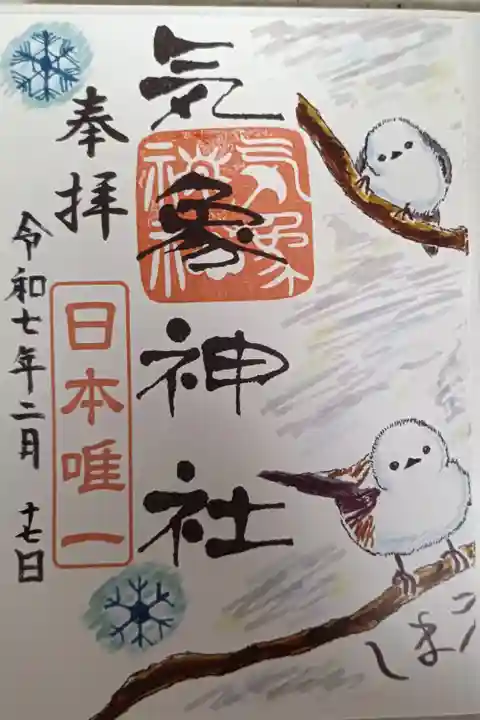 気象神社
気象神社
奉拝
日本唯一
令和七年二月十七日
しまエ